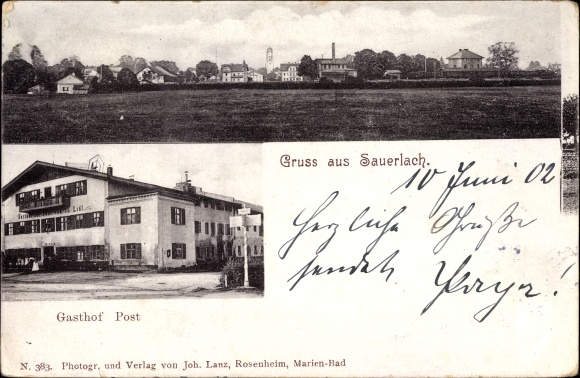 Gruss aus Sauerlach.
10 Juni 02
Herzliche Grüße
sendet
Gasthof Post
N. 383. Photogr. und Verlag von Joh. Lanz, Rosenheim, Marien-Bad